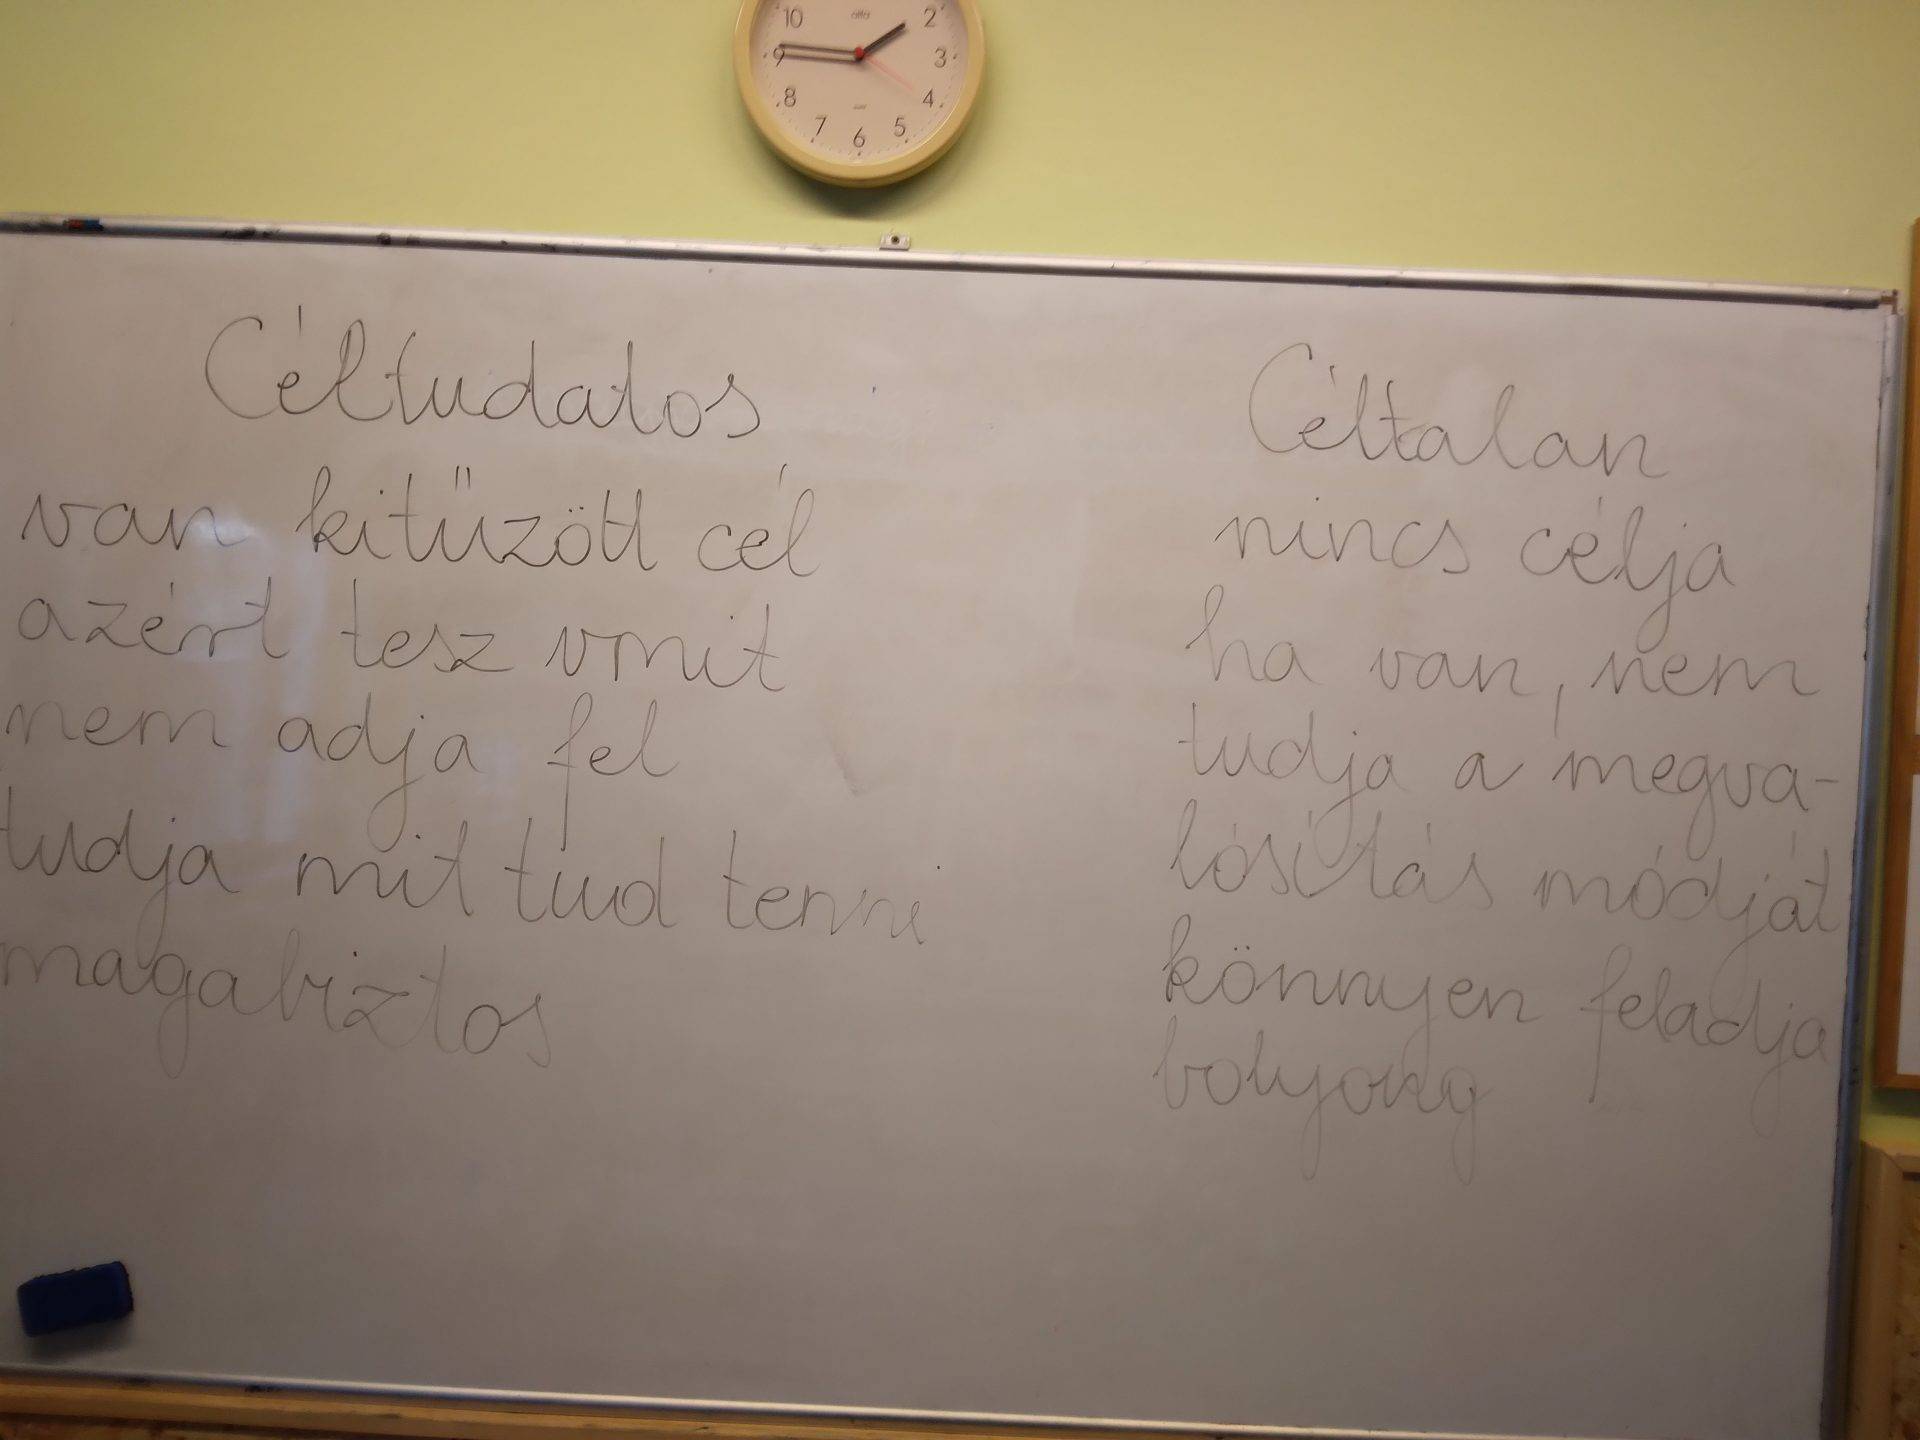 alfa
10
2
9
3
8
4
7
6
5
Céltudatos
van kitűzött cél
azért tesz vmit
nem adja fel
tudja mit tud tenni
magabiztos
Céltalan
nincs célja
ha van, nem
tudja a megva-
lósítás módját
könnyen feladja
bolyong